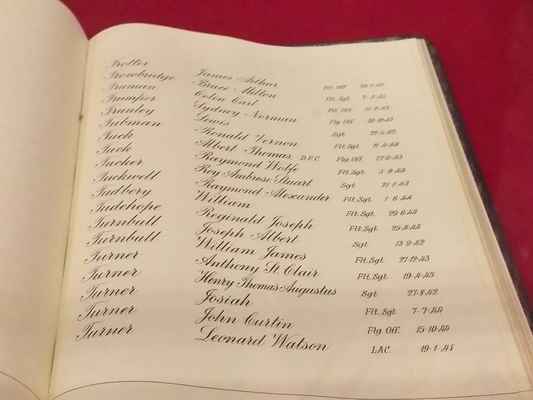 Trotter James Arthur Plt. Off.
Trowbridge Bruce Milton Flt. Sgt.
Truman Colin Carl Off.
Trumper Sydney Norman Flg. Off.
Lewis Sgt.
Tubman Ronald Vernon Flt. Sgt.
Tuck Albert Thomas D.F.C. Flg. Off. 43
Tuck Raymond Wolfe Flt. Sgt.
Tucker Roy Ambrose Stuart Sgt.
Tuckwell Raymond Alexander Flt. Sgt. 1-6-44
Tudbery William Flt. Sgt. 29-6-44
Tudehope Reginald Joseph Flt. Sgt. 25-8-44
Turnbull Joseph Albert Sgt. 13-9-42
Turnbull William James Flt. Sgt. 21-12-43
Turner Anthony St Clair Flt. Sgt. 19-4-45
Turner Henry Thomas Augustus Sgt. 27-8-42
Turner Josiah Flt. Sgt. 7-7-44
Turner John Curtin Flg. Off. 15-10-44
Turner Leonard Watson LAC. 19-1-41